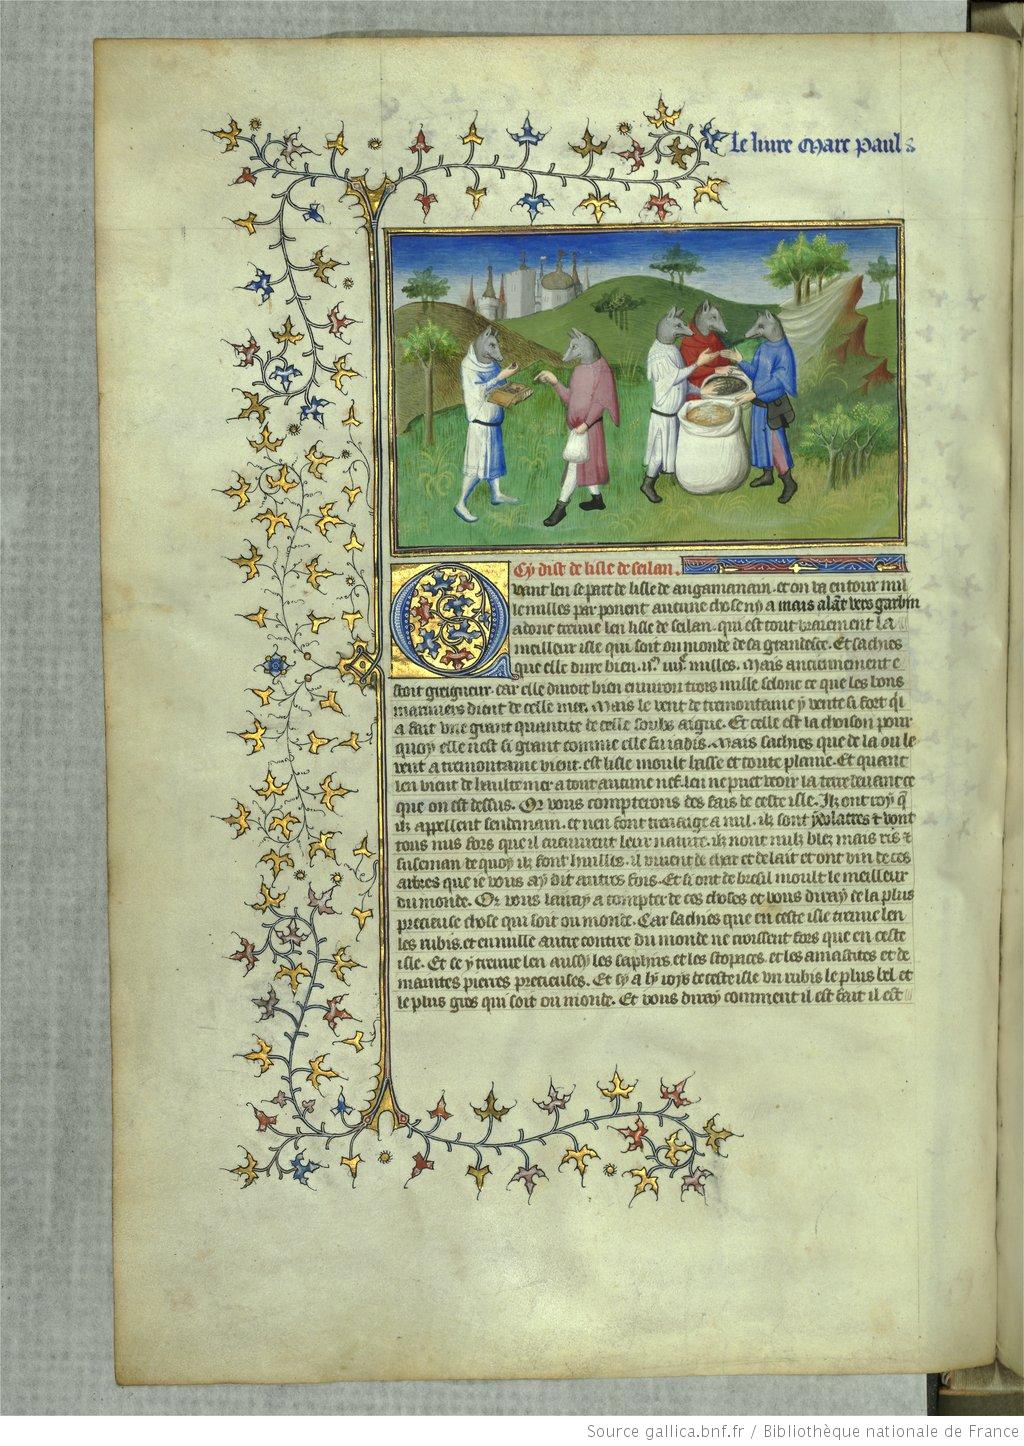 Le livre Marc Paul &
Cy dist de lisle de seilan.
Quant len se part de lisle de angamanain. et on va entour mil
le milles par ponent aucune chose ny a mais alãt vers garbin
adont treuve len lisle de seilan. qui est tout vraiement la
meilleur isle qui soit ou monde de sa grandesce. Et sachies
que elle dure bien. ii.ᵐ iiiiᶜ. milles. Mais anciennement e
stoit greigneur. car elle duroit bien environ trois mille selonc ce que les bons
mariniers dient de celle mer. Mais le vent de tremontaine y vente si fort qˡ
a fait une grant quantite de celle soubz aigue. Et celle est la choison pour
quoy elle nest si grant comme elle fu iadis. Mais sachies que de la ou le
vent a tremontaine vient. est lisle moult basse et toute plaine. Et quant
len vient de haulte mer atout aucune nef. len ne puet veoir la terre devant ce
que on est dessus. Or vous compterons des fais de ceste isle. Ilz ont roy q̃
ilz appellent sendemain. et nen font treuage a nul. ilz sont ydolatres & vont
tous nus fors que il cueuvrent leur nature. ilz nont nulz blez mais ris &
suseman de quoy ilz font huilles. il vivent de char et de lait et ont vin de ces
arbres que ie vous ay dit autres fois. Et si ont de bresil moult le meilleur
du monde. Or vous lairay a compter de ces choses et vous diray de la plus
precieuse chose qui soit ou monde. Car sachies que en ceste isle treuve len
les rubis. et en nulle autre contree du monde ne croissent fors que en ceste
isle. Et se y treuve len aussy les saphirs et les stopaces. et les amastites et de
maintes pierres precieuses. Et sy a ly roys de ceste isle un rubis le plus bel et
le plus gros qui soit ou monde. Et vous diray comment il est fait il est
Source gallica.bnf.fr / Bibliothèque nationale de France